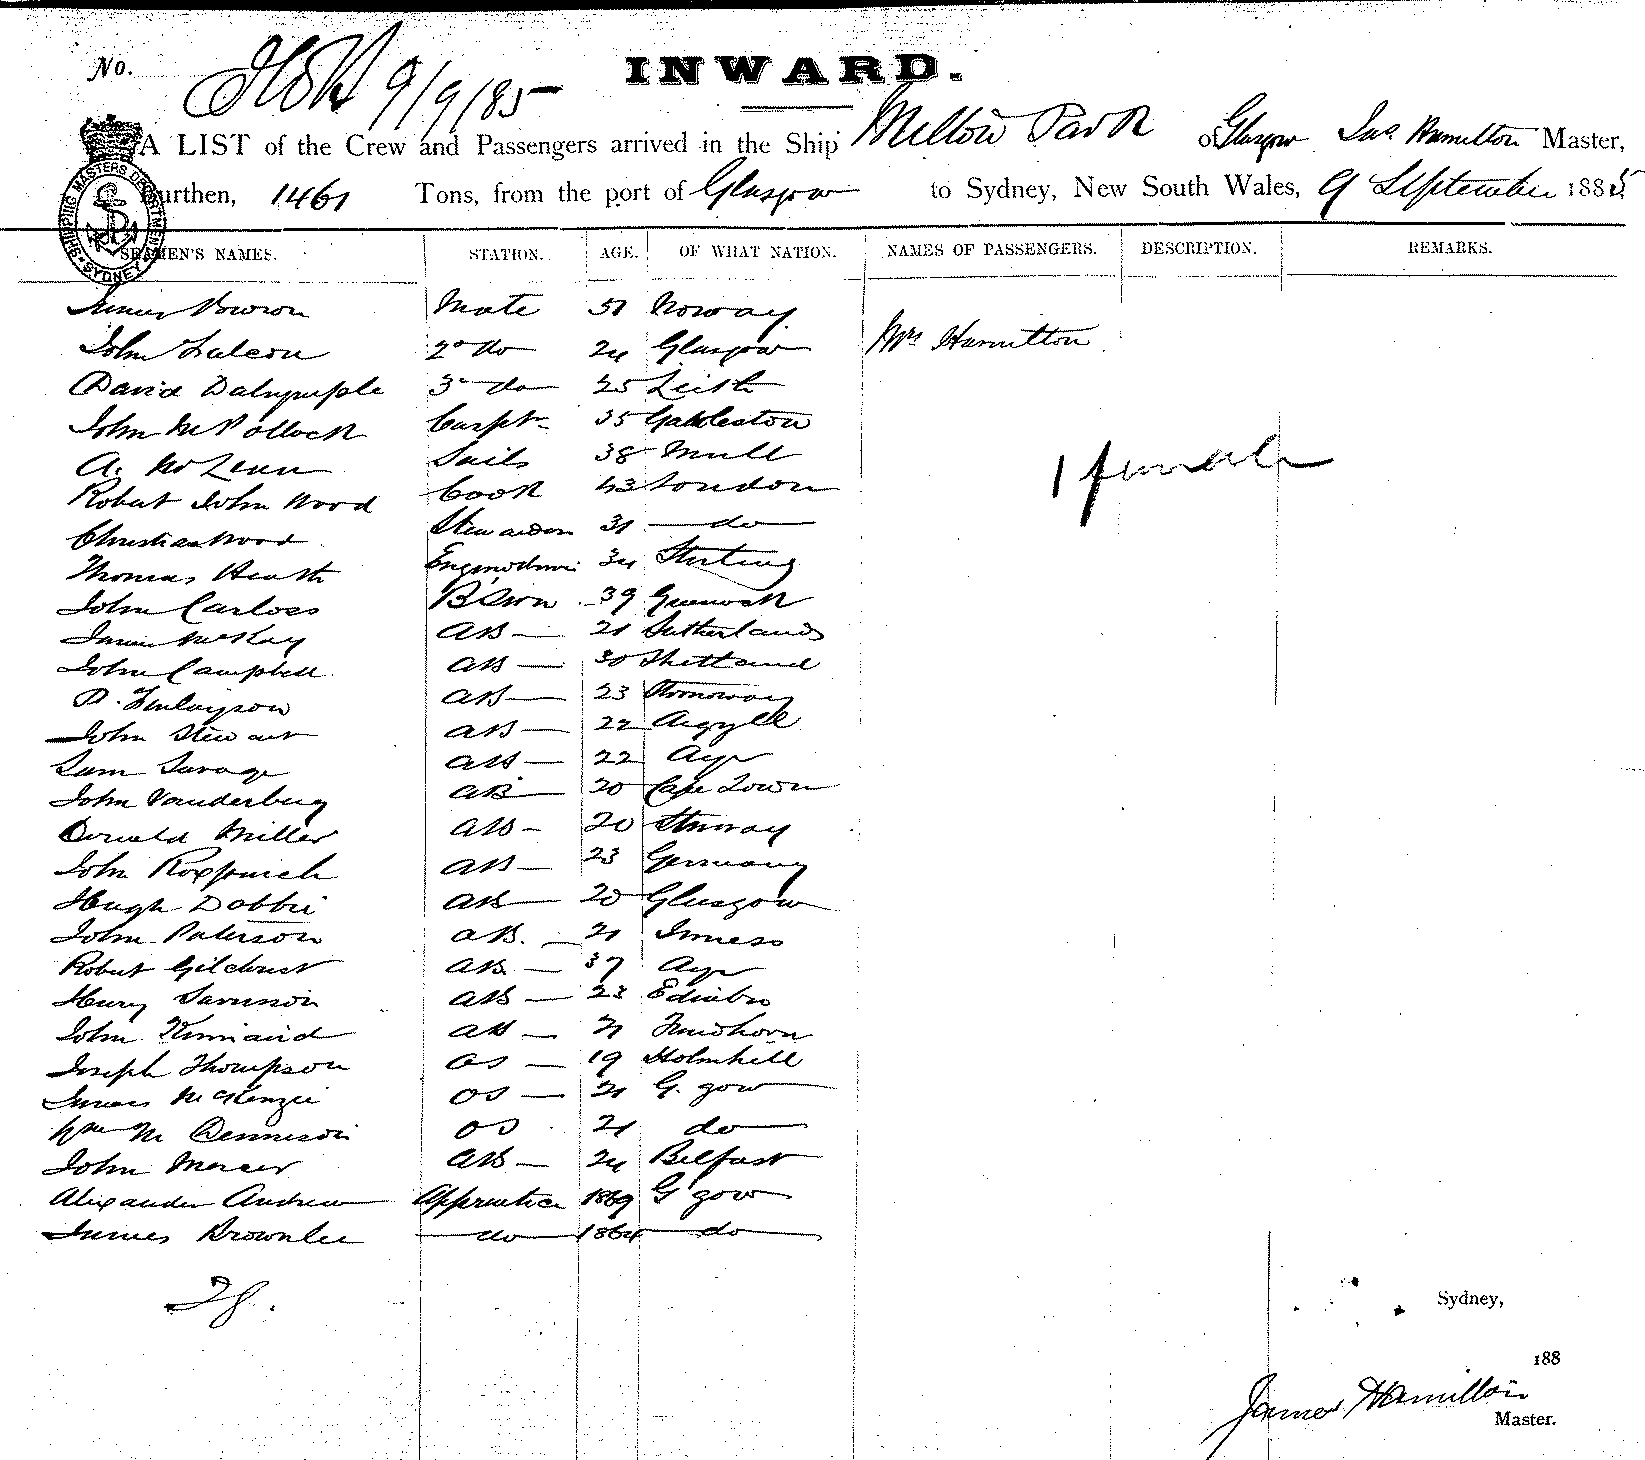 No. 9/9/85 INWARD.
A LIST of the Crew and Passengers arrived in the Ship Milton Park of Glasgow Jas Hamilton Master,
Burthen, 1461 Tons, from the port of Glasgow to Sydney, New South Wales, 9 September 1885
SHIPPING MASTERS DEPARTMENT SYDNEY
SEAMEN'S NAMES. STATION. AGE. OF WHAT NATION. NAMES OF PASSENGERS. DESCRIPTION. REMARKS.
James Mate 51 Noway
Mrs Hamilton
John 2nd do 24 Glasgow
David Dalrymple 3rd do 25 Leith
John McPollock Carptr 35
A. McLean Sails 38 Mull
1 female
Robert John Wood Cook 43 London
Christian Wood Stewardess 31 do
Thomas Heath 34 Stirling
John Carloss B'Swn 39 Greenock
James McKay AB 21 Sutherlands
John Campbell AB 30 Shetland
D. Finlayson AB 23 Stornoway
John Stewart AB 22 Argyll
Sam Savage AB 22 Ayr
John Vanderberg AB 20 Cape Town
Donald Miller AB 20
John AB 23 Germany
Hugh Dobbie AB 20 Glasgow
John Paterson AB. 21
Robert Gilchrist AB. 37 Ayr
Henry AB 23 Edinbro
John Kinnaird AB 21 Findhorn
Joseph Thompson OS 19 Holmhill
James McKenzie OS 21 G. gow
Wm M Dennison OS 21 do
John Mercer AB 24 Belfast
Alexander Andrew Apprentice 1869 G gow
James Brownlee do 1864 do
28.
Sydney,
188
James Hamilton
Master.